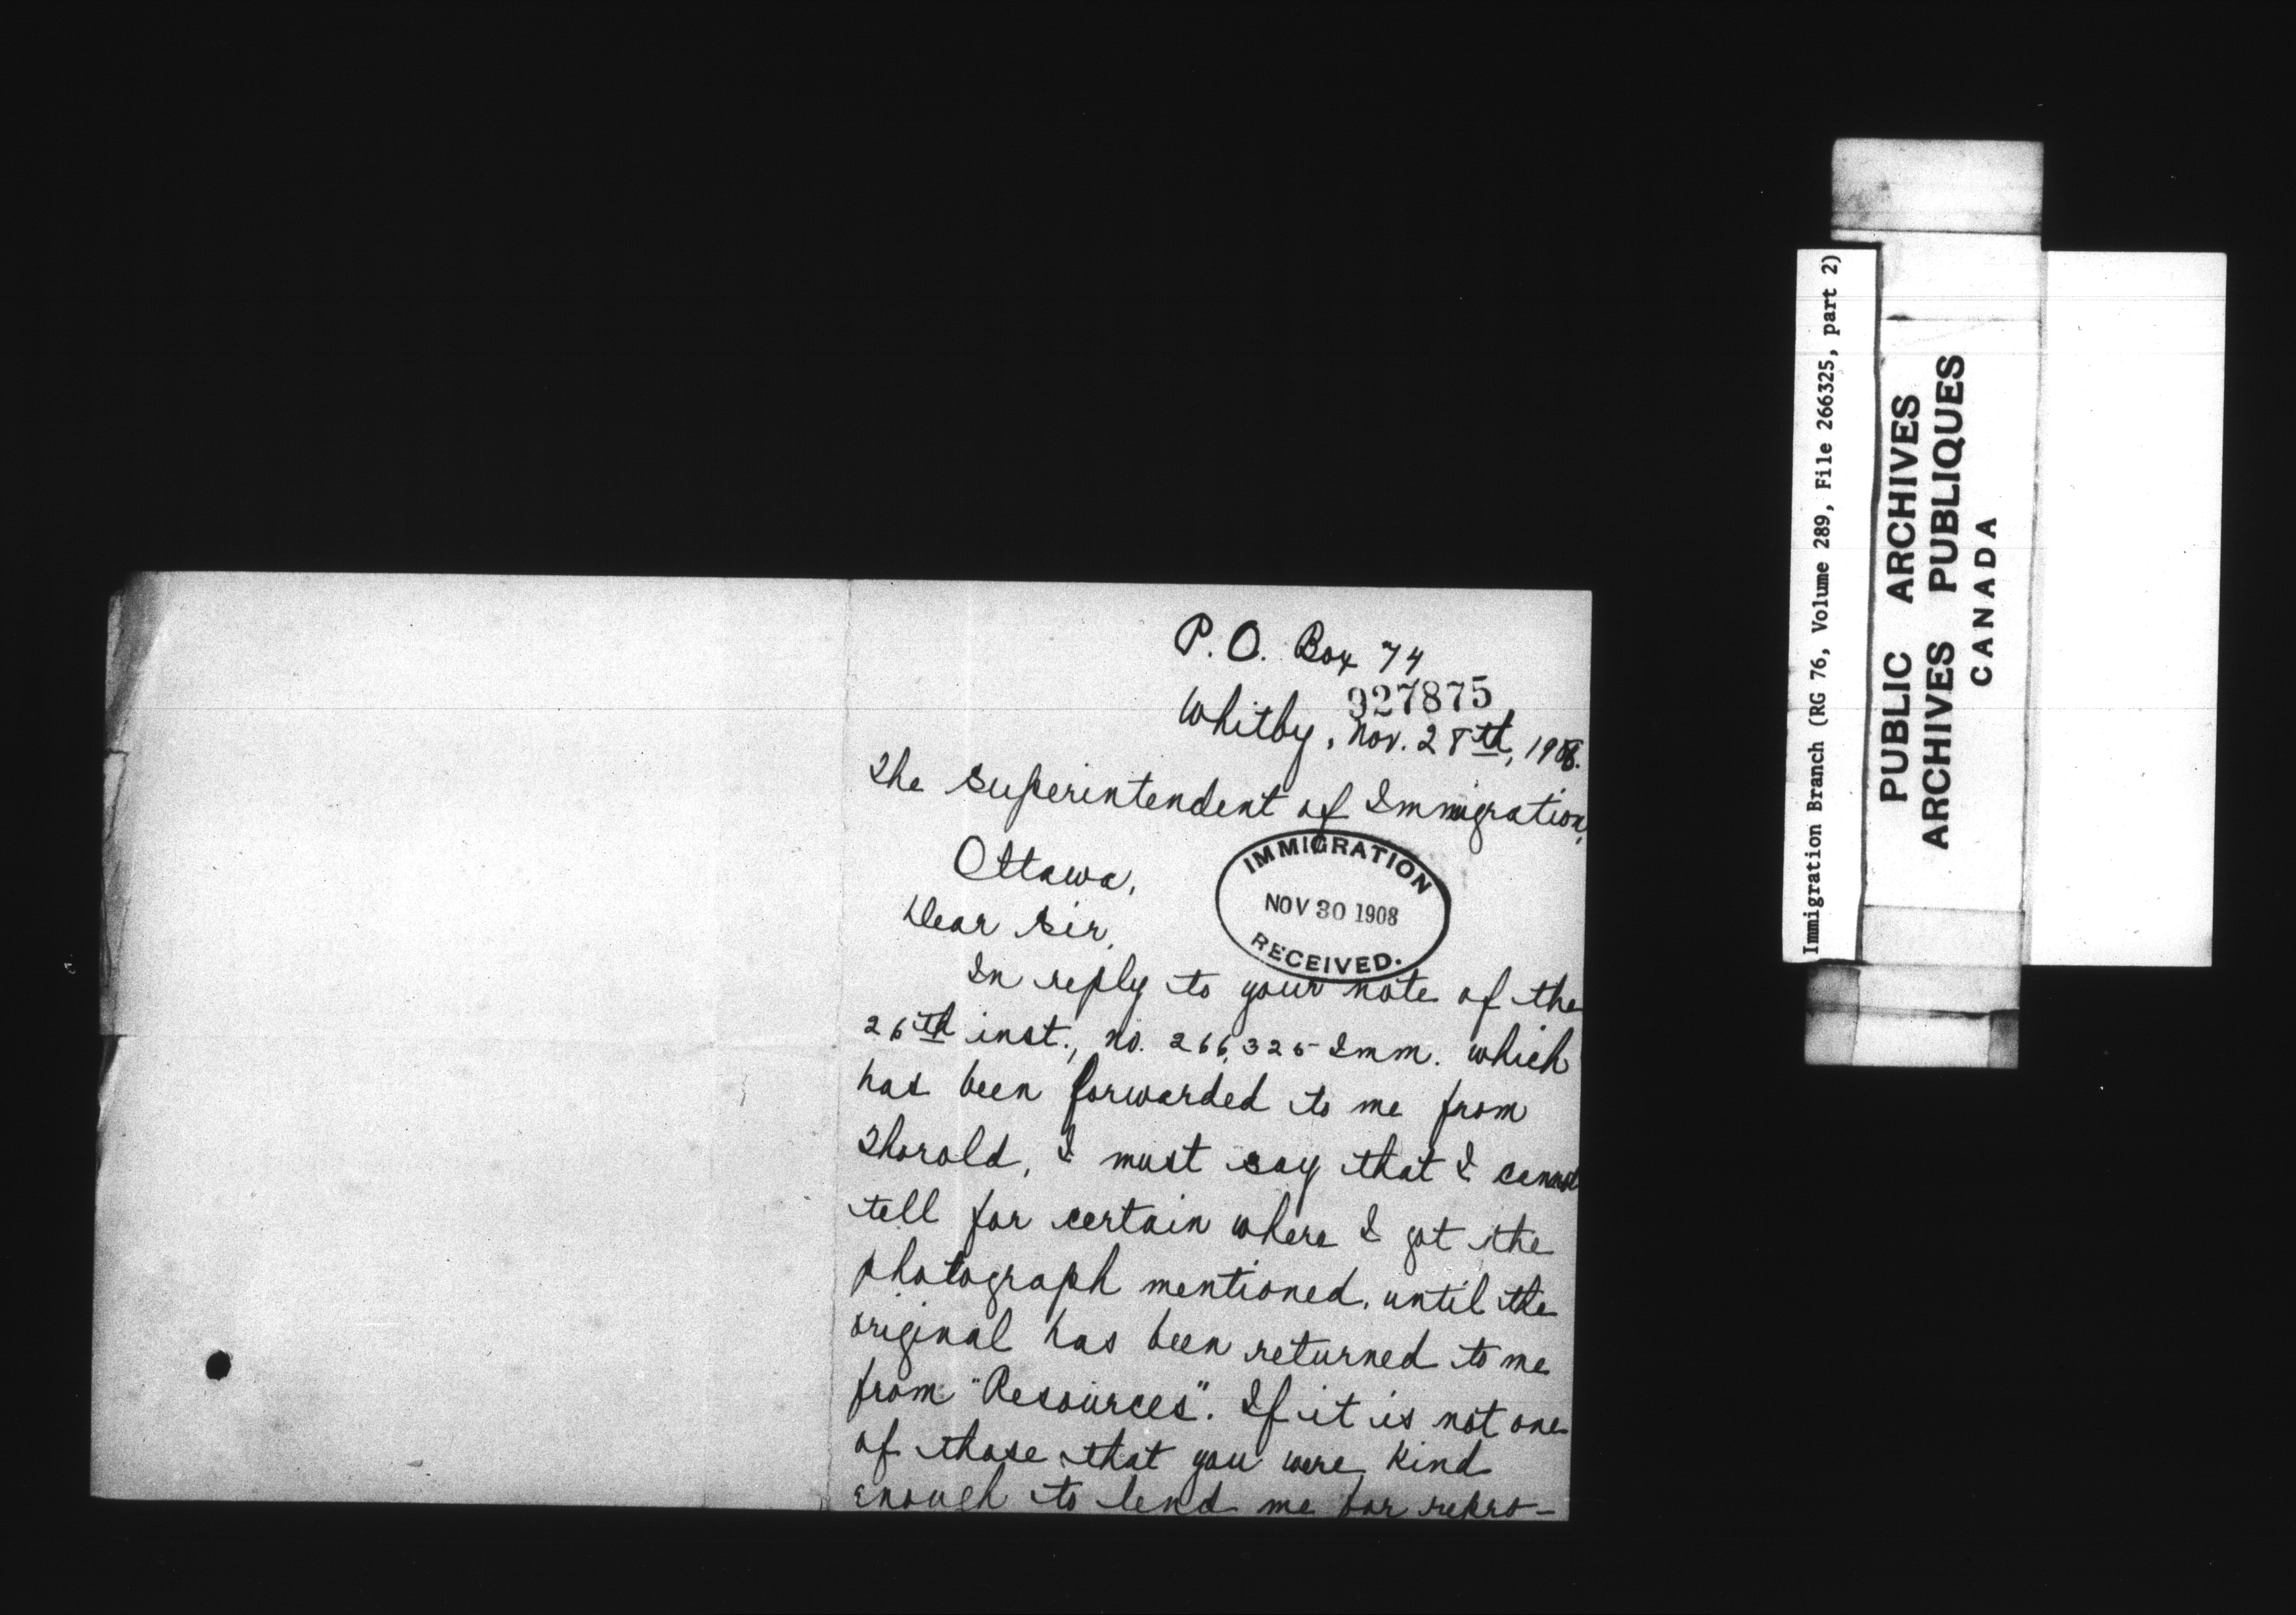 P. O. Box 74
927875
Whitby, Nov. 28th, 1908.
The Superintendent of Immigration,
Ottawa,
IMMIGRATION
NOV 30 1908
RECEIVED.
Dear Sir,
In reply to your note of the
26th inst., no. 266,325 Imm. which
has been forwarded to me from
Thorold, I must say that I cannot
tell for certain where I got the
photograph mentioned, until the
original has been returned to me
from "Resources". If it is not one
of those that you were kind
enough to lend me for repro-
Immigration Branch (RG 76, Volume 289, File 266325, part 2)
PUBLIC ARCHIVES
ARCHIVES PUBLIQUES
CANADA